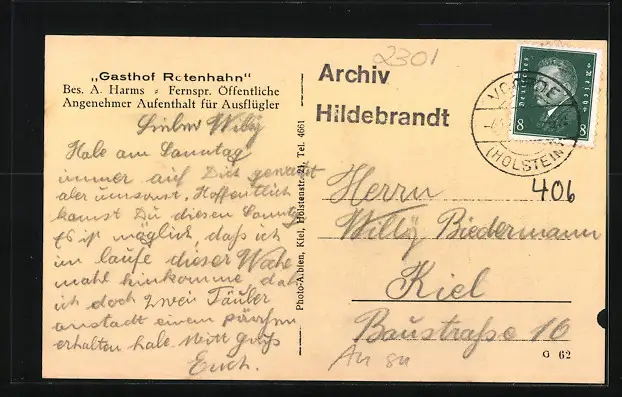 „Gasthof Rotenhahn“
Bes. A. Harms - Fernspr. Öffentliche
Angenehmer Aufenthalt für Ausflügler
Lieber Willy
Habe am Sonntag
immer auf Dich gewartet
aber umsonst, Hoffentlich
kommst Du diesen Sonntag
Es ist möglich, daß ich
im laufe dieser Woche
mahl hinkomme, daß
ich doch zwei Täuber
anstadt einem pärchen
erhalten habe. Mitt gruß
Euch.
Photo-Albien, Kiel, Holstenstr. 21, Tel. 4661
2301
Archiv
Hildebrandt
Deutsches Reich
8 8
(HOLSTEIN)
406
Herrn
Willy Biedermann
Kiel
Baustraße 16
G 62